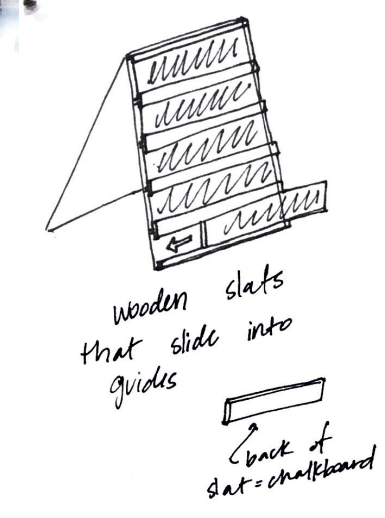 wooden slats
that slide into
guides
back of
slat = chalkboard